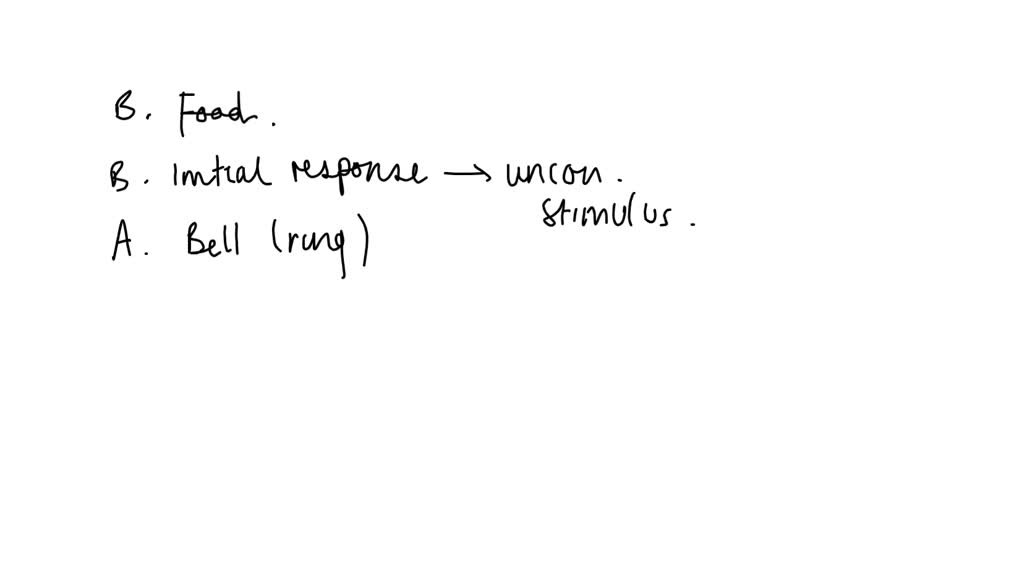 B. Food.
B. Initial response → uncon.
stimulus.
A. Bell (rung)